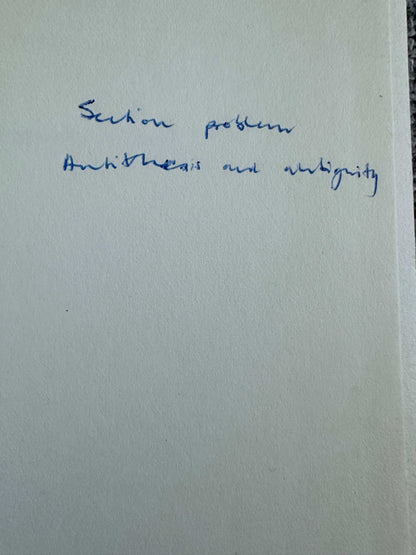 Section problem
Antithesis and ambiguity